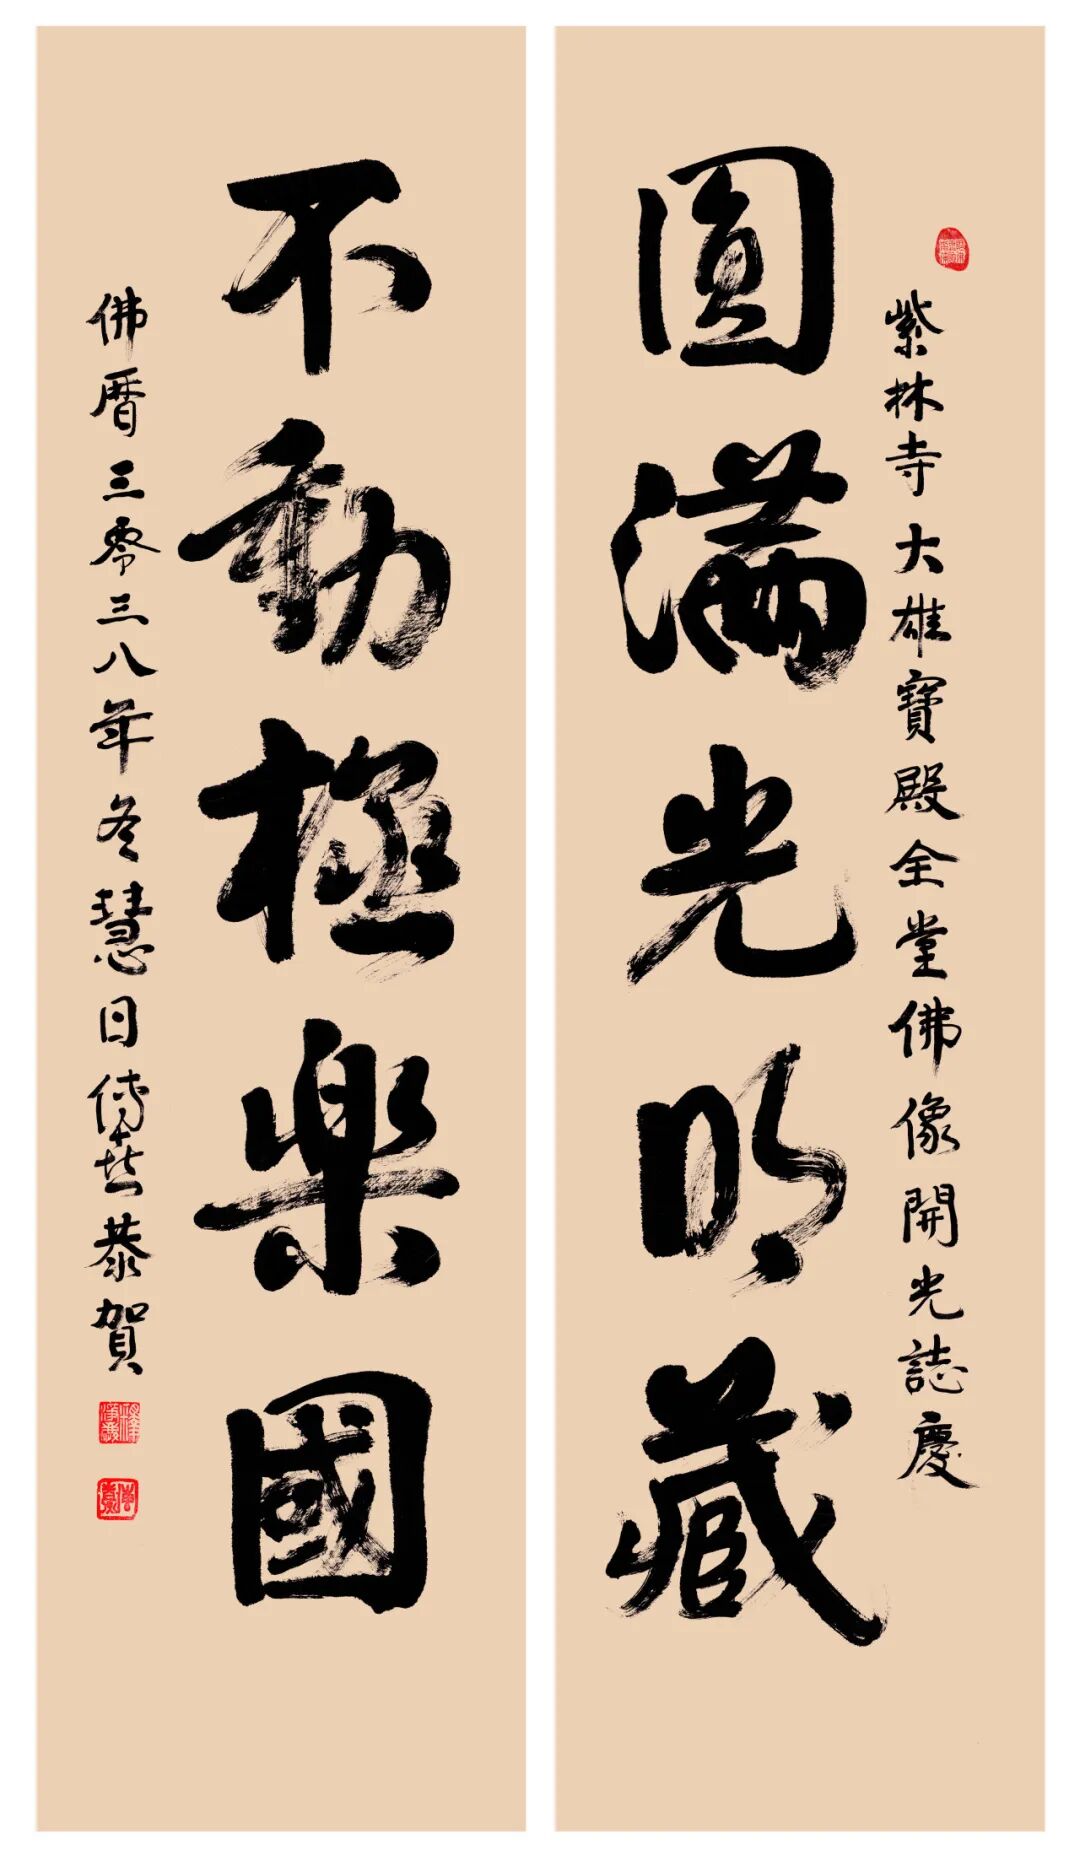 紫林寺大雄寶殿全堂佛像開光誌慶
圓滿光明藏
不動極樂國
佛曆三零三八年冬慧日傳喜恭賀